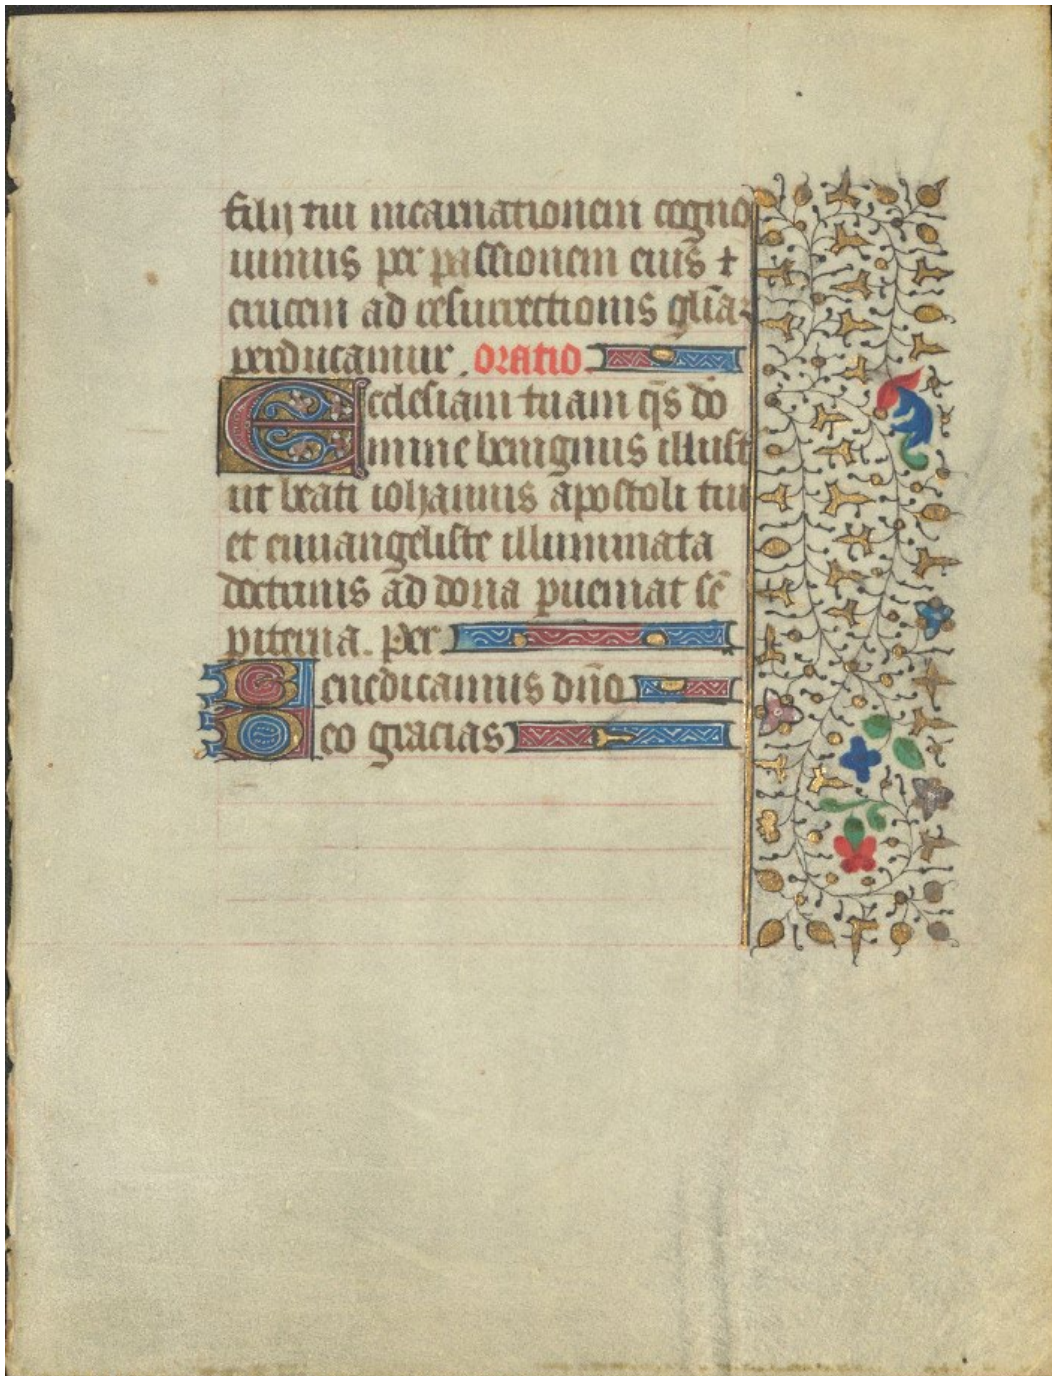 filij tui incarnationem cogno
uimus per passionem eius̄ +
crucem ad resurrectionis gl̄iaʒ
perducamur. oratio
Ecclesiam tuam q̄s do
mine benignus illust
ut beati iohannis apostoli tui
et euuangeliste illuminata
doctrinis ad dona pueniat sē
piterna. Per
Benedicamus dn̄o
Deo gracias